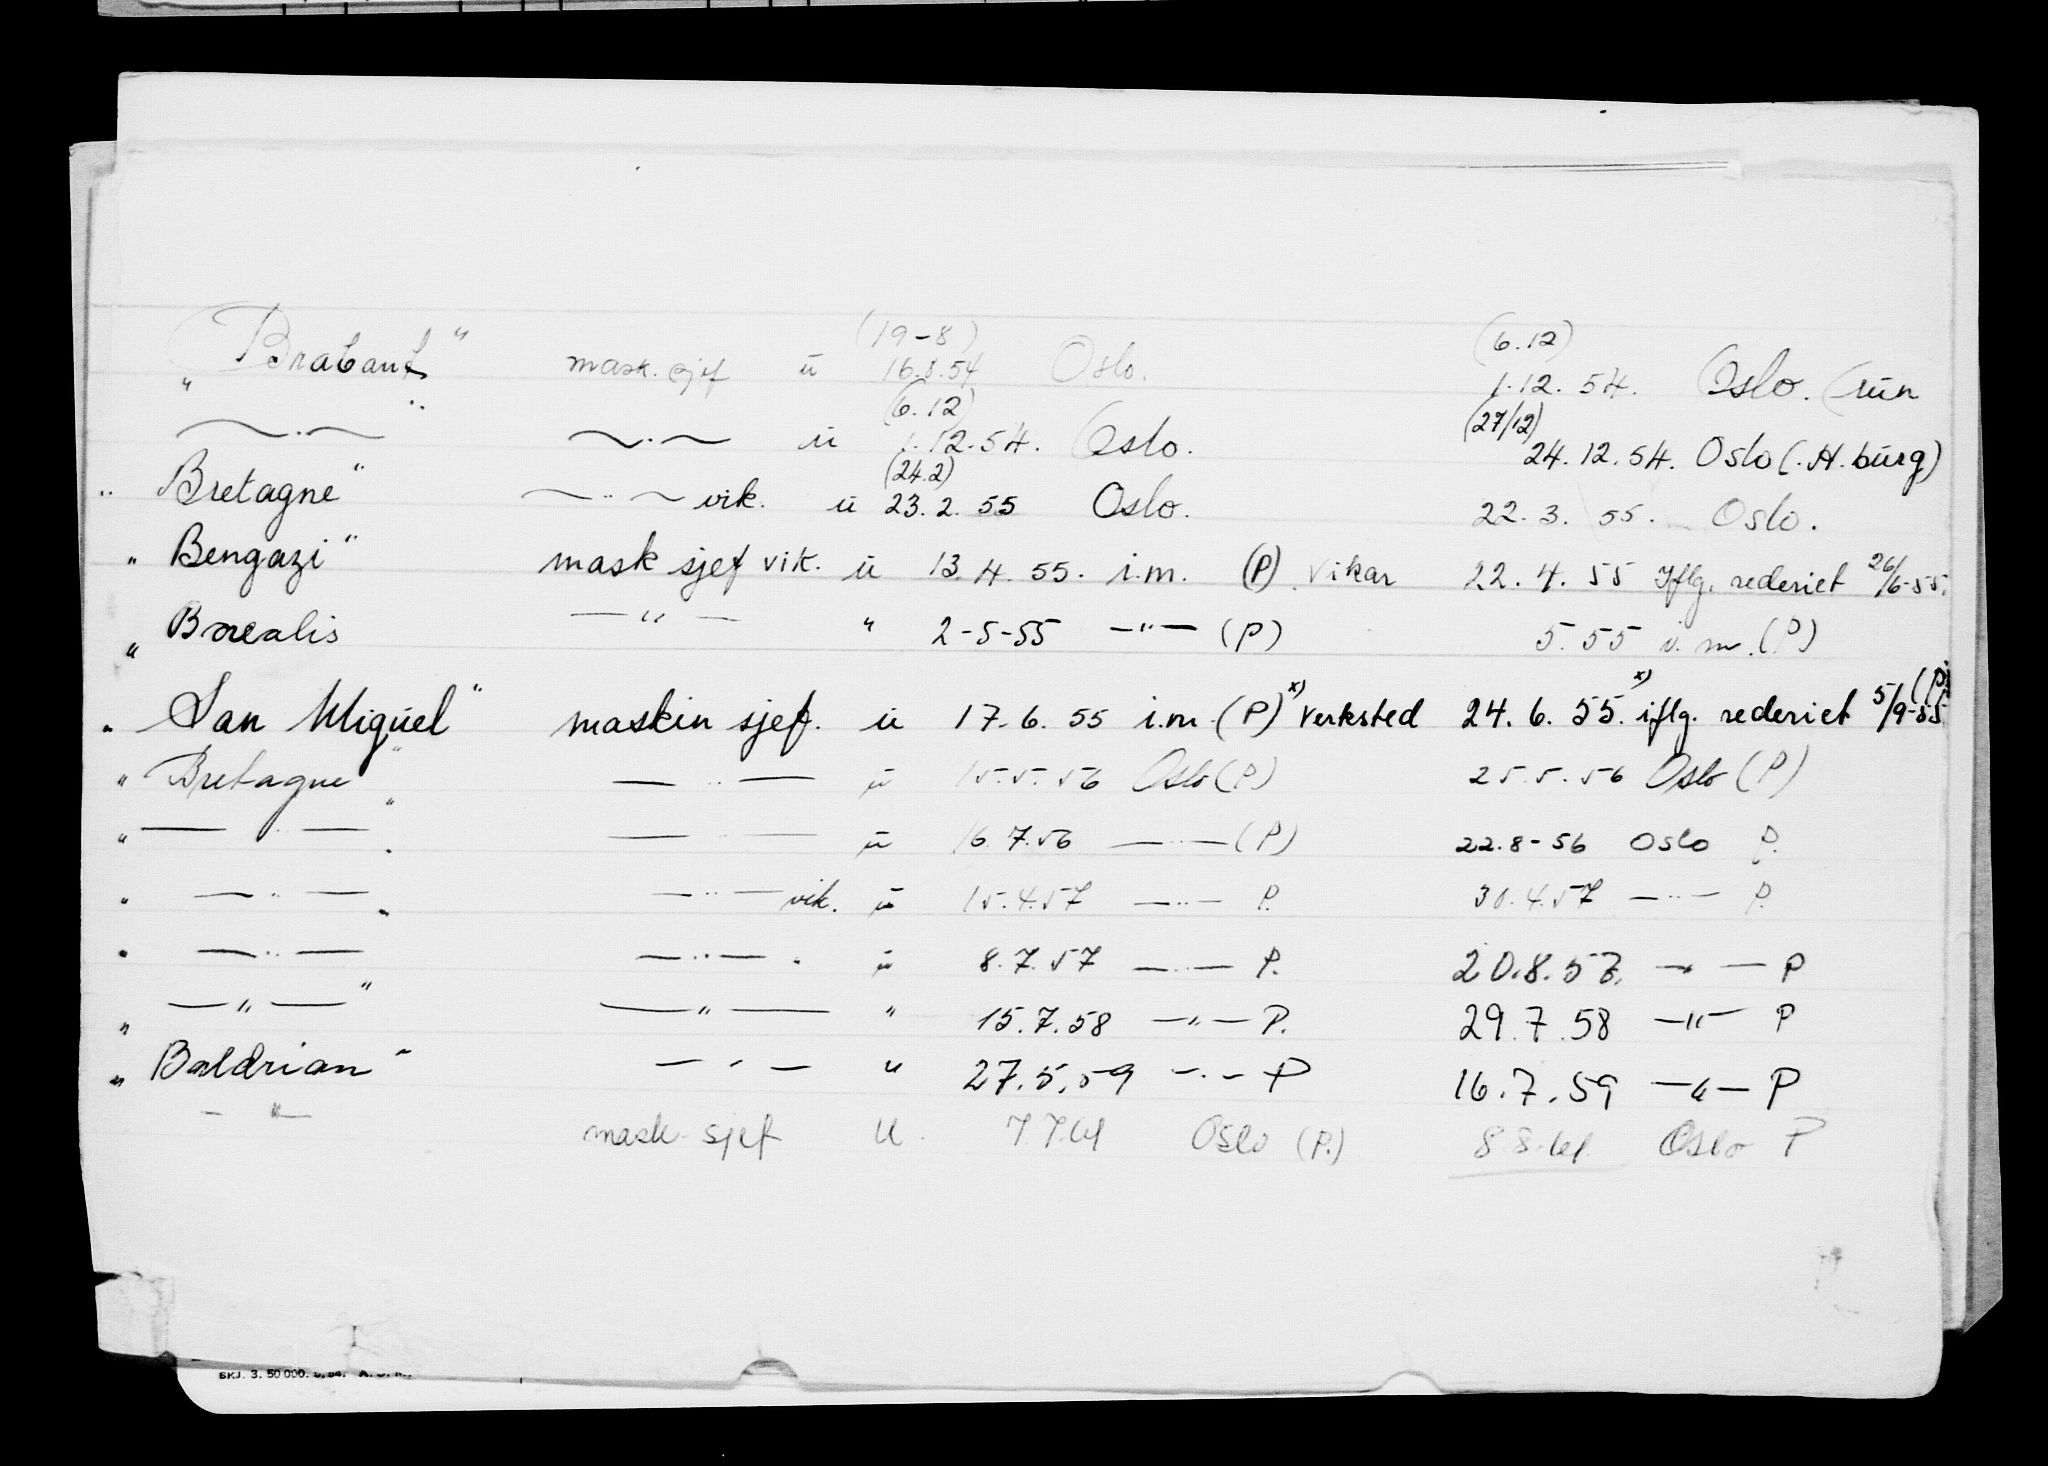 (19-8) (6.12)
„ Brabant" mask. sjef ü 16.8.54 Oslo. 1.12.54. Oslo. (
(6.12) (27/12)
~·~ ~·~ ü 1.12.54. Oslo. 24.12.54. Oslo (H.bürg)
(24.2)
„ Bretagne" ~··~ vik. ü 23.2.55 Oslo. 22.3.55. Oslo.
„ Bengazi" mask sjef vik. ü 13.4.55. i.m. (P). Vikar 22.4.55 Iflg. rederiet 26/6-55.
„ Borealis —"— " 2-5-55 —"— (P) 5.55 i.m. (P)
„ San Miguel" maskin sjef. ü 17.6.55 i.m. (P) x) Verksted 24.6.55. x) iflg. rederiet 5/9-55. (P)
„ Bretagne" —"— ü 15.5.56 Oslo (P) 25.5.56 Oslo (P)
" —"— " —"— ü 16.7.56 —"— (P) 22.8-56 Oslo P.
" —"— " —"— vik. ü 15.4.57 —"— P. 30.4.57 —"— P.
" —"— —"— " ü 8.7.57 —"— P. 20.8.57. —"— P
„ —"— " —"— " 15.7.58 —"— P. 29.7.58 —"— P
„ Baldrian" —"— " 27.5.59 —"— P 16.7.59 —"— P
—"— mask sjef u. 7.7.61 Oslo (P.) 8.8.61. Oslo P
SKJ. 3. 50 000.